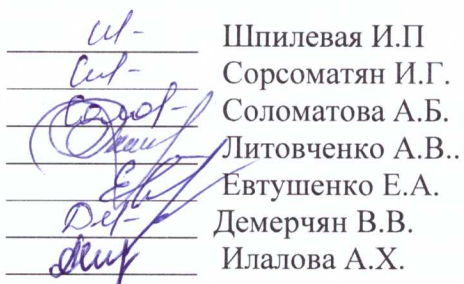 Шпилевая И.П
Сорсоматян И.Г.
Соломатова А.Б.
Литовченко А.В..
Евтушенко Е.А.
Демерчян В.В.
Илалова А.Х.